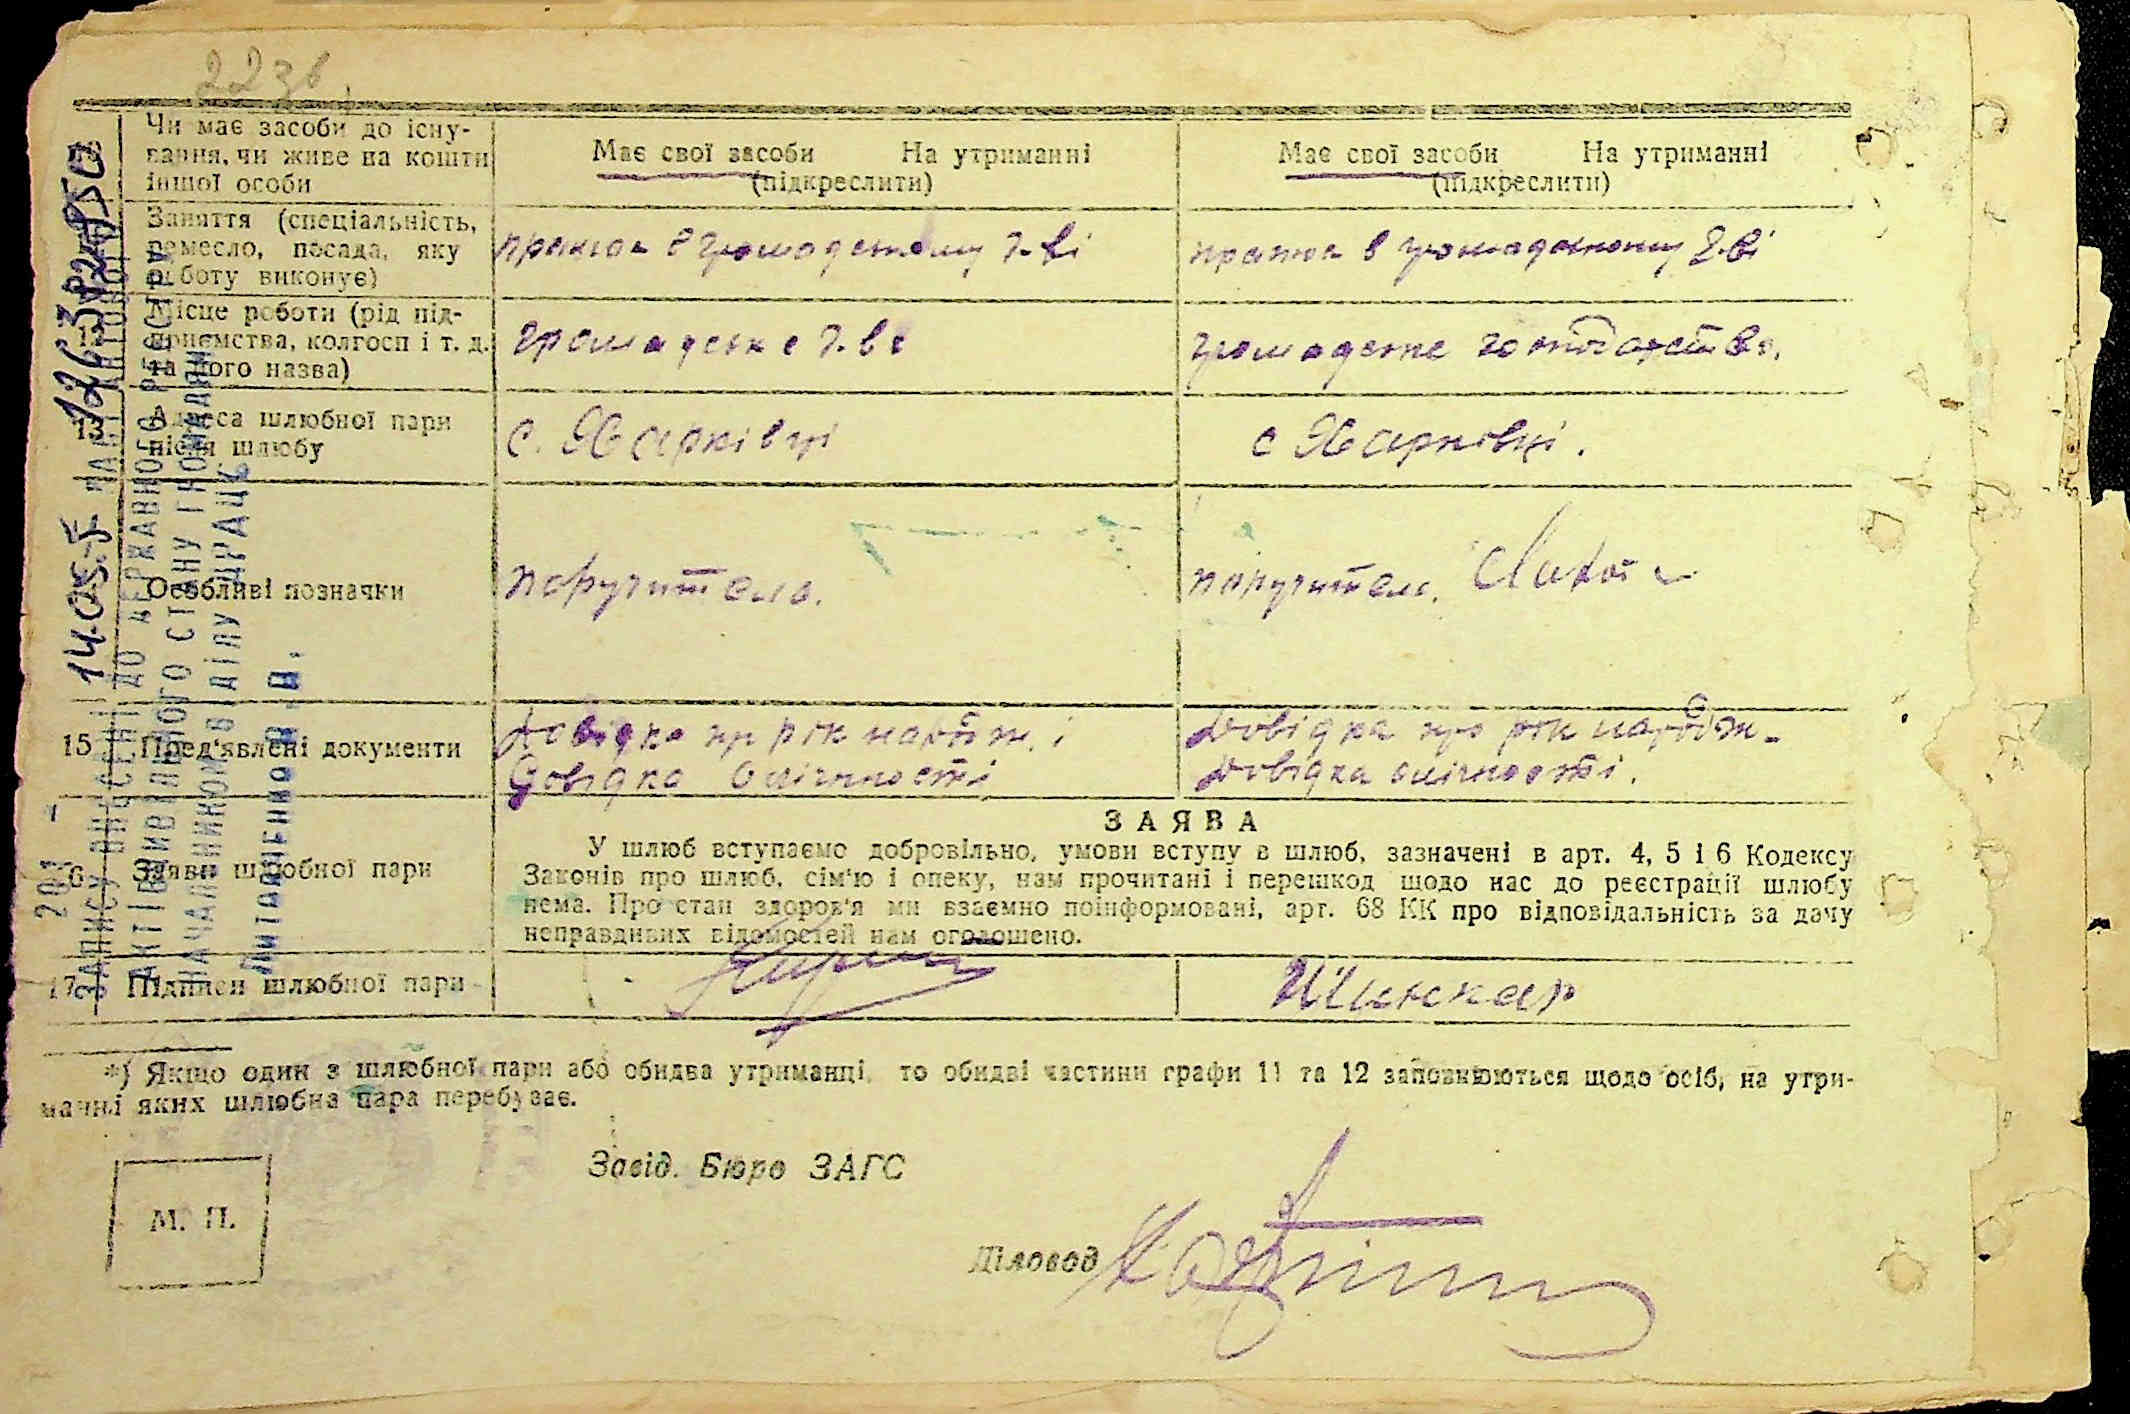 223в
Чи має засоби до існу-
вання, чи живе на кошти
іншої особи
Має свої засоби На утриманні
(підкреслити)
Має свої засоби На утриманні
(підкреслити)
Заняття (спеціальність,
ремесло, посада, яку
роботу виконує)
працює в громадському г-ві
працює в громадському г-ві
Місце роботи (рід під-
приємства, колгосп і т. д.
та його назва)
громадське г-во
громадське господарство,
13 Адреса шлюбної пари
після шлюбу
с. Харківці
с Харківці.
Особливі позначки
поручителі.
поручителі.
15 Пред'явлені документи
Довідка пр рік народж. і
Довідка особистості
Довідка про рік народж-
Довідка особистості.
6 Заяви шлюбної пари
ЗАЯВА
У шлюб вступаємо добровільно, умови вступу в шлюб, зазначені в арт. 4, 5 і 6 Кодексу
Законів про шлюб, сім'ю і опеку, нам прочитані і перешкод щодо нас до реєстрації шлюбу
нема. Про стан здоров'я ми взаємно поінформовані, арт. 68 КК про відповідальність за дачу
неправдивих відомостей нам оголошено.
17 Підписи шлюбної пари
Шинкар
*) Якщо один з шлюбної пари або обидва утриманці, то обидві частини графи 11 та 12 заповнюються щодо осіб, на утри-
манні яких шлюбна пара перебуває.
Завід. Бюро ЗАГС
М. П.
Діловод
ЗАПИСУ ВНЕСЕНІ ДО ДЕРЖАВНОГО РЕЄСТРУ
АКТІВ ЦИВІЛЬНОГО СТАНУ ГРОМАДЯН
НАЧАЛЬНИКОМ ВІДІЛУ ДРАЦС